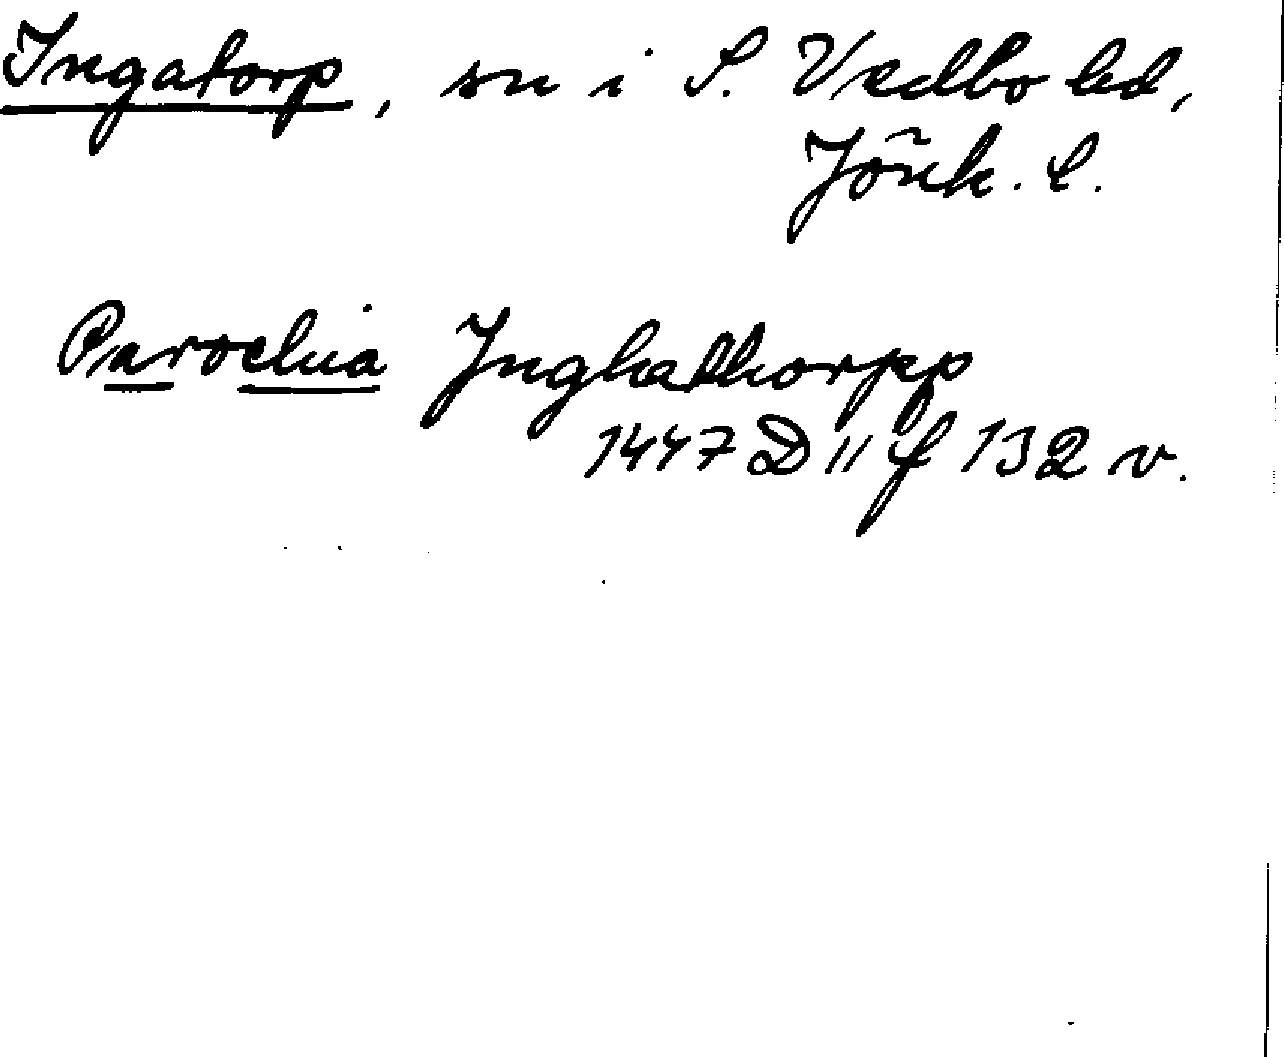 Ingatorp, sn i S. Vedbo hd,
Jönk. l.
Parochia Jnghathorpp
1447 D 11 f 132 v.